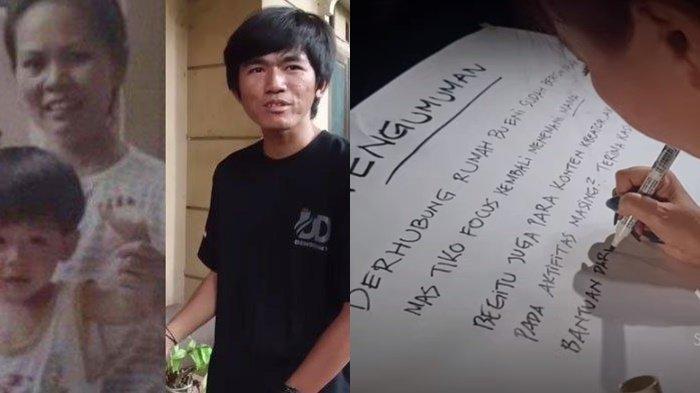 PENGUMUMAN
BERHUBUNG RUMAH BU ENI SUDAH
MAS TIKO FOCUS KEMBALI MENEMANI MAMA
BEGITU JUGA PARA KONTEN KREATOR
PADA AKTIFITAS MASING.2 TERIMA
BANTUAN DARI